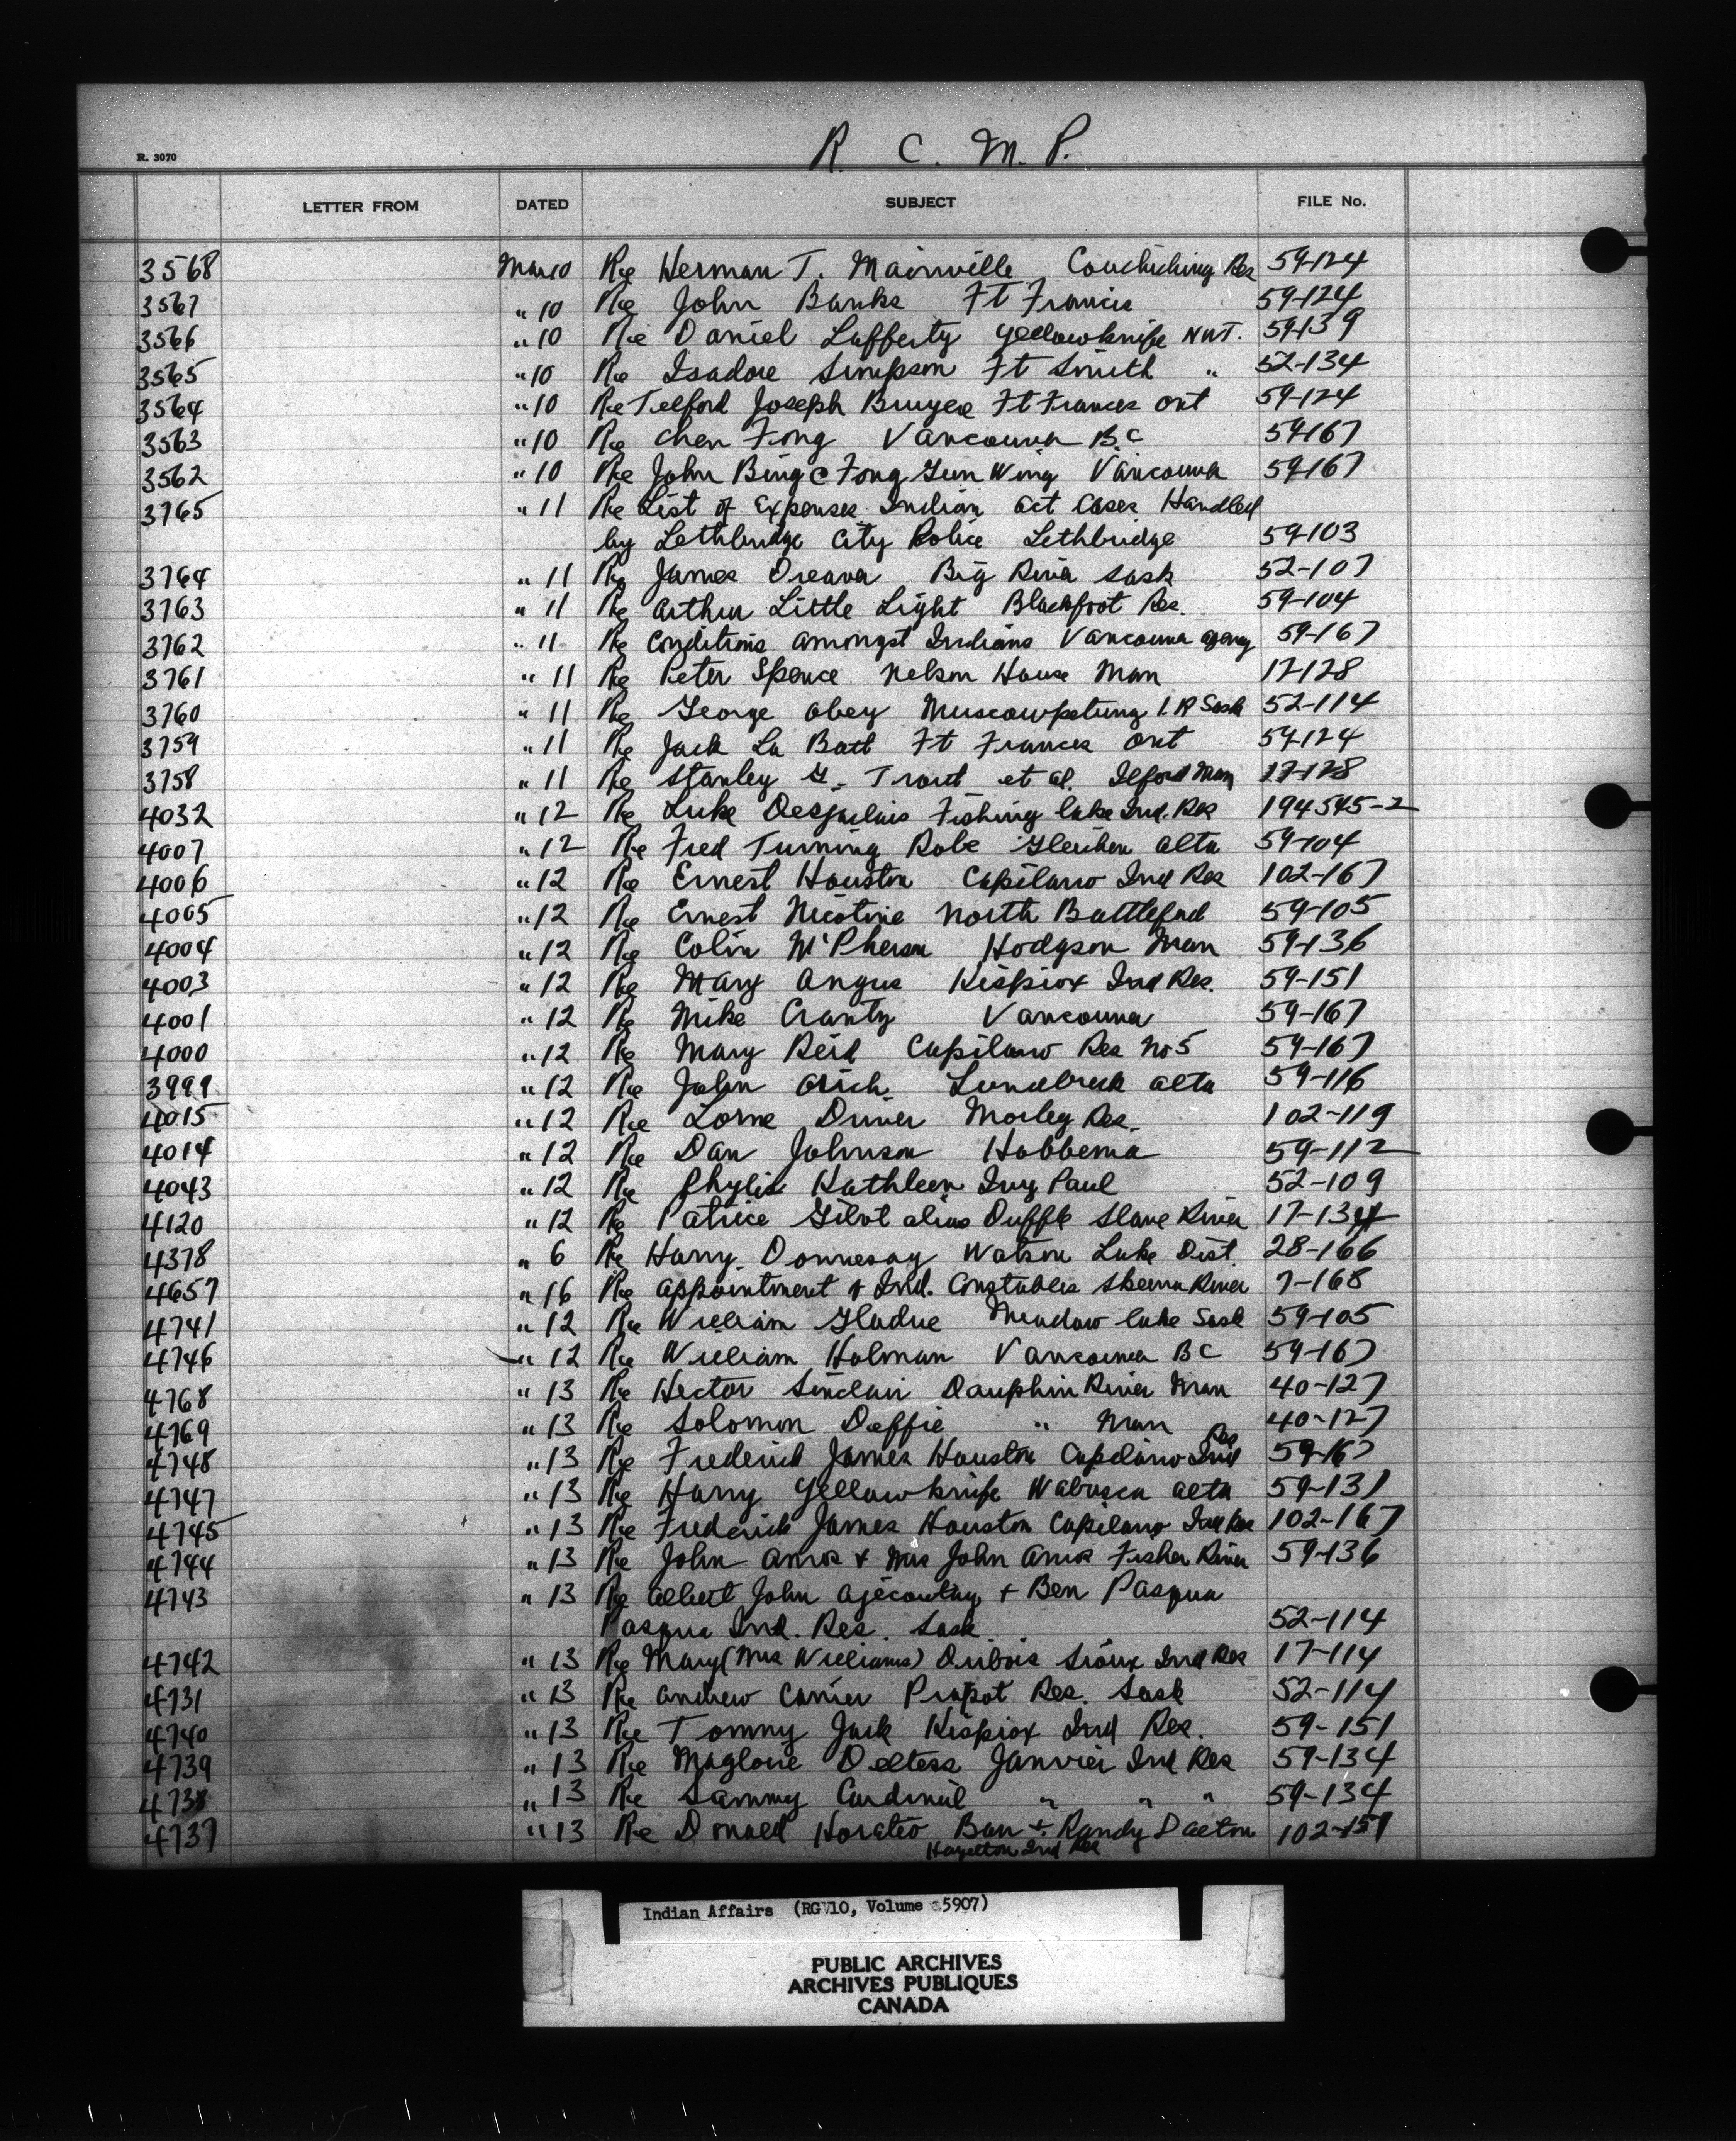 R. C. M. P.
R. 3070
LETTER FROM DATED SUBJECT FILE No.
3568 Mar 10 Re Herman T. Mainville Couchiching Res 59-124
3567 " 10 Re John Banks Ft Francis 59-124
3566 " 10 Re Daniel Lafferty Yellowknife NWT. 59-139
3565 " 10 Re Isadore Simpson Ft Smith " 52-134
3564 " 10 Re Telford Joseph Bruyere Ft Frances Ont 59-124
3563 " 10 Re Chen Fong Vancouver B.C 59-167
3562 " 10 Re John Bing C Fong Gun Wing Vancouver 59-167
3765 " 11 Re List of Expenses Indian Act Cases Handled
by Lethbridge City Police Lethbridge 59-103
3764 " 11 Re James Dreaver Big River Sask 52-107
3763 " 11 Re Arthur Little Light Blackfoot Res. 59-104
3762 " 11 Re Conditions amongst Indians Vancouver Agency 59-167
3761 " 11 Re Peter Spence Nelson House Man 17-128
3760 " 11 Re George Obey Muscowpetung I.R Sask 52-114
3759 " 11 Re Jack La Batt Ft Frances Ont 59-124
3758 " 11 Re Stanley G. Trout et al. Ilford Man 17-128
4032 " 12 Re Luke Desjarlais Fishing Lake Ind. Res 194545-2
4007 " 12 Re Fred Turning Robe Gleichen Alta 59-104
4006 " 12 Re Ernest Houston Capilano Ind Res 102-167
4005 " 12 Re Ernest Nicotine North Battleford 59-105
4004 " 12 Re Colin McPherson Hodgson Man 59-136
4003 " 12 Re Mary Angus Kispiox Ind Res. 59-151
4001 " 12 Re Mike Vancouver 59-167
4000 " 12 Re Mary Reid Capilano Res No 5 59-167
3999 " 12 Re John Lundbreck Alta 59-116
4015 " 12 Re Lorne Driver Morley Res. 102-119
4014 " 12 Re Dan Johnson Hobbema 59-112
4043 " 12 Re Phylis Kathleen Ivy Paul 52-109
4120 " 12 Re Patrice Gibot alias Duffle Slave River 17-134
4378 " 6 Re Harry Donnesay Watson Lake Dist. 28-166
4657 " 16 Re Appointment of Ind. Constables Skeena River 7-168
4741 " 12 Re William Gladue Meadow Lake Sask 59-105
4746 " 12 Re William Holman Vancouver BC 59-167
4768 " 13 Re Hector Sinclair Dauphin River Man 40-127
4769 " 13 Re Solomon Deffie " Man 40-127
4748 " 13 Re Frederick James Houston Capilano Ind Res 59-167
4747 " 13 Re Harry Yellowknife Wabasca Alta 59-131
4745 " 13 Re Frederick James Houston Capilano Ind Res 102-167
4744 " 13 Re John Amos + Mrs John Amos Fisher River 59-136
4743 " 13 Re Albert John Ajecoutay + Ben Pasqua
Pasqua Ind. Res. Sask. 52-114
4742 " 13 Re Mary (Mrs Williams) Dubois Sioux Ind Res 17-114
4731 " 13 Re Andrew Carrier Piapot Res. Sask 52-114
4740 " 13 Re Tommy Jack Kispiox Ind Res. 59-151
4739 " 13 Re Magloire Deltess Janvier Ind Res 59-134
4738 " 13 Re Sammy Cardinal " " " 59-134
4737 " 13 Re Donald Horatio Ban + Randy Dalton 102-151
Hazelton Ind Res
Indian Affairs (RG 10, Volume 5907)
PUBLIC ARCHIVES
ARCHIVES PUBLIQUES
CANADA